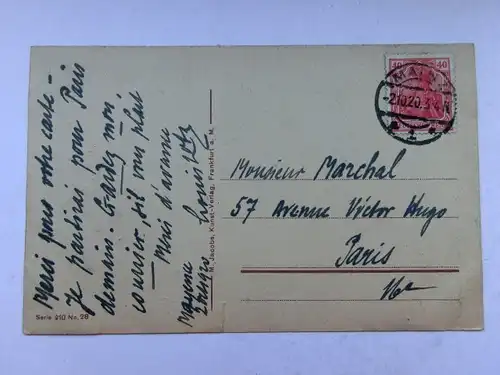 Merci pour votre carte –
Je partirai pour Paris
demain. Gardez moi
courrier, s'il vous plait
Merci d'avance
Louis
Mayence
2 10 1920
Serie 210 No. 28
M. Jacobs, Kunst-Verlag, Frankfurt a. M.
40 40
MAINZ
-2.10.20.3-4 N
1
Monsieur Marchal
57 Avenue Victor Hugo
Paris
16e